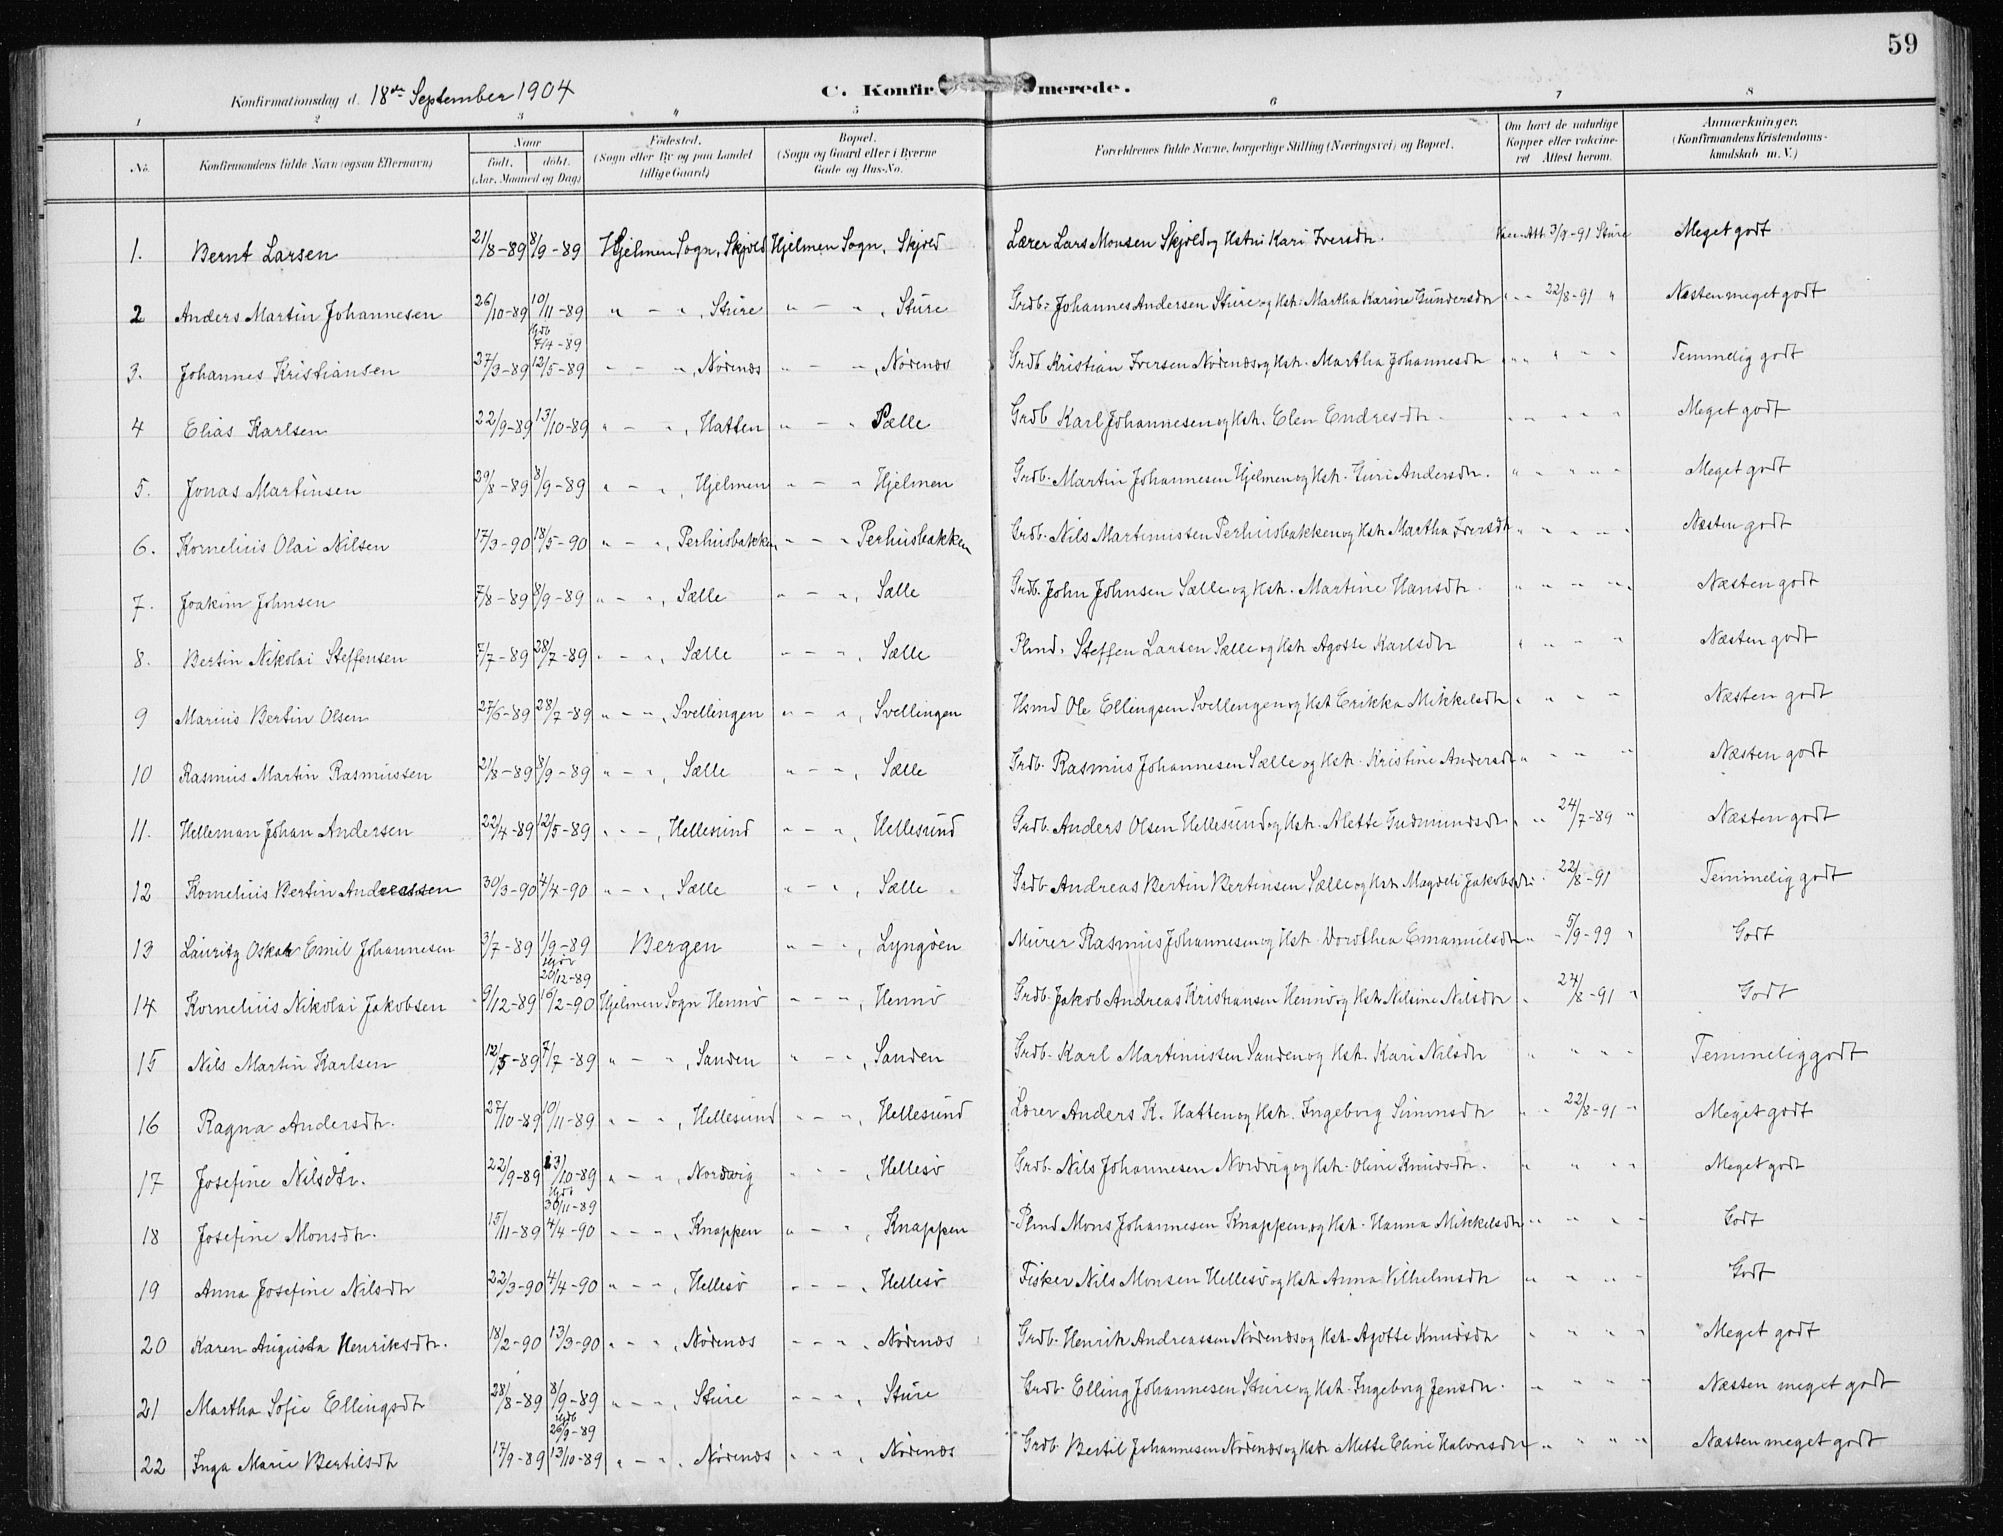 59
Konfirmationsdag d. 18de September 1904
C. Konfirmerede.
1 2 3 4 5 6 7 8
No. Konfirmandens fulde Navn (ogsaa Efternavn) Naar født. døbt. (Aar, Maaned og Dag) Fødested. (Sogn eller By og paa Landet tillige Gaard) Bopæl. (Sogn og Gaard eller i Byerne Gade og Hus-No. Forældrenes fulde Navne, borgerlige Stilling (Næringsvei) og Bopæl. Om havt de naturlige Kopper eller vaccineret Attest herom. Anmærkninger. (Konfirmandens Kristendomskundskab m. V.)
1. Bernt Larsen 21/8-89 8/9-89 Hjelmen Sogn, Skjold Hjelmen Sogn, Skjold Lærer Lars Monsen Skjold og Hstr. Kari Iversdtr. Vac. Att. 3/9-91 Sture Meget godt
2 Anders Martin Johannesen 26/10-89 10/11-89 " - ", Sture " - ", Sture Grdb. Johannes Andersen Sture og Hstr. Martha Karine Gundersdtr " " 22/8-91 " Næsten meget godt
3. Johannes Kristiansen 27/3-89 hjdb 7/4-89 12/5-89 " - ", Nórenæs " - ", Nórenæs Grdb Kristian Iversen Nórenæs og Hstr. Martha Johannesdtr " " " " " Temmelig godt
4 Elias Karlsen 22/9-89 13/10-89 " - ", Hatten " - " Sælle Grdb Karl Johannesen og Hstr. Elen Endresdtr " " " " " Meget godt
5. Jonas Martinsen 29/8-89 8/9-89 " - ", Hjelmen " - " Hjelmen Grdb. Martin Johannesen Hjelmen og Hstr. Guri Andersdtr. " " " " " Meget godt
6. Kornelius Olai Nilsen 17/3-90 18/5-90 " - ", Perhusbakken " - " Perhusbakken Grdb. Nils Martinussen Perhusbakken og Hstr Martha Iversdtr " " " " " Næsten godt
7. Joakim Johnsen 7/8-89 8/9-89 " - ", Sælle " - ", Sælle Grdb. John Johnsen Sælle og Hstr. Martine Hansdtr. " " " " " Næsten godt
8. Bertin Nikolai Steffensen 7/7-89 28/7-89 " - ", Sælle " - ", Sælle Plmd. Steffen Larsen Sælle og Hstr Agotte Karlsdtr " " " " Næsten godt
9 Marius Bertin Olsen 27/6-89 28/7-89 " - ", Svellingen " - ", Svellingen Hsmd Ole Ellingsen Svellengen og Hst Erikka Mikkelsdtr " " " " Næsten godt
10 Rasmus Martin Rasmussen 21/8-89 8/9-89 " - ", Sælle " - ", Sælle Grdb. Rasmus Johannesen Sælle og Hstr. Kristine Andersdtr " " " " Næsten godt
11. Helleman Johan Andersen 22/4-89 12/5-89 " - ", Hellesund " - ", Hellesund Grdb. Anders Olsen Hellesund og Hstr. Alette Gudmundsdtr " " 24/7-89 " Næsten godt
12 Kornelius Bertin Andreassen 30/3-90 4/4-90 " - ", Sælle " - ", Sælle Grdb Andreas Bertin Bertinsen Sælle og Hstr Magdeli Jakobsdtr. " 22/8-91 Temmelig godt
13 Lauritz Oskar Emil Johannesen 3/7-89 1/9-89 Bergen " - ", Lyngöen Murer Rasmus Johannesen og Hstr. Dorothea Emanuelsdtr " " 5/9-99 " Godt
14 Kornelius Nikolai Jakobsen 9/12-89 20/12-89 16/2-90 Hjelmen Sogn Hennó " - ", Hennó Grdb. Jakob Andreas Kristiansen Hennó og Hstr Nilsine Nilsdtr " 24/8-91 " Godt
15 Nils Martin Karlsen 12/5-89 7/7-89 " - ", Sanden " - ", Sanden Grdb. Karl Martinussen Sanden og Hstr. Kari Nilsdtr " " " " Temmelig godt
16 Ragna Andersdtr. 27/10-89 10/11-89 " - ", Hellesund " - ", Hellesund Lærer Anders K. Hatten og Hstr. Ingeborg Simonsdtr " " 22/8-91 " Meget godt
17 Josefine Nilsdtr. 22/9-89 13/10-89 " - ", Nordvig " - ", Hellesó Grdb. Nils Johannesen Nordvig og Hstr. Oline Knudsdtr. " " " " Meget godt
18 Josefine Monsdtr. 15/11-89 30/11-89 4/4-90 " - ", Knappen " - ", Knappen Plmd Mons Johannesen Knappen og Hstr. Hanna Mikkelsdtr " " " " Godt
19 Anna Josefine Nilsdtr 22/3-90 4/4-90 " - ", Hellesó " - ", Hellesó Fisker Nils Monsen Hellesó og Hstr Anna Vilhelmsdtr " " " " Godt
20 Karen Augusta Henriksdtr. 18/2-90 13/3-90 " - ", Nórenæs " - ", Nórenæs Grdb. Henrik Andreassen Nórenæs og Hstr. Agotte Knudsdtr " " " " Meget godt
21 Martha Sofie Ellingsdtr 28/8-89 8/9-89 " - ", Sture " - ", Sture Grdb. Elling Johannesen Sture og Hstr. Ingeborg Jensdtr. " " " " Næsten meget godt
22 Inga Marie Bertilsdtr 17/9-89 hjdb 26/9-89 13/10-89 " - ", Nórenæs " - ", Nórenæs Grdb Bertil Johannesen Nórenæs og Hstr Mette Eline Halvorsdtr " " " " Næsten meget godt